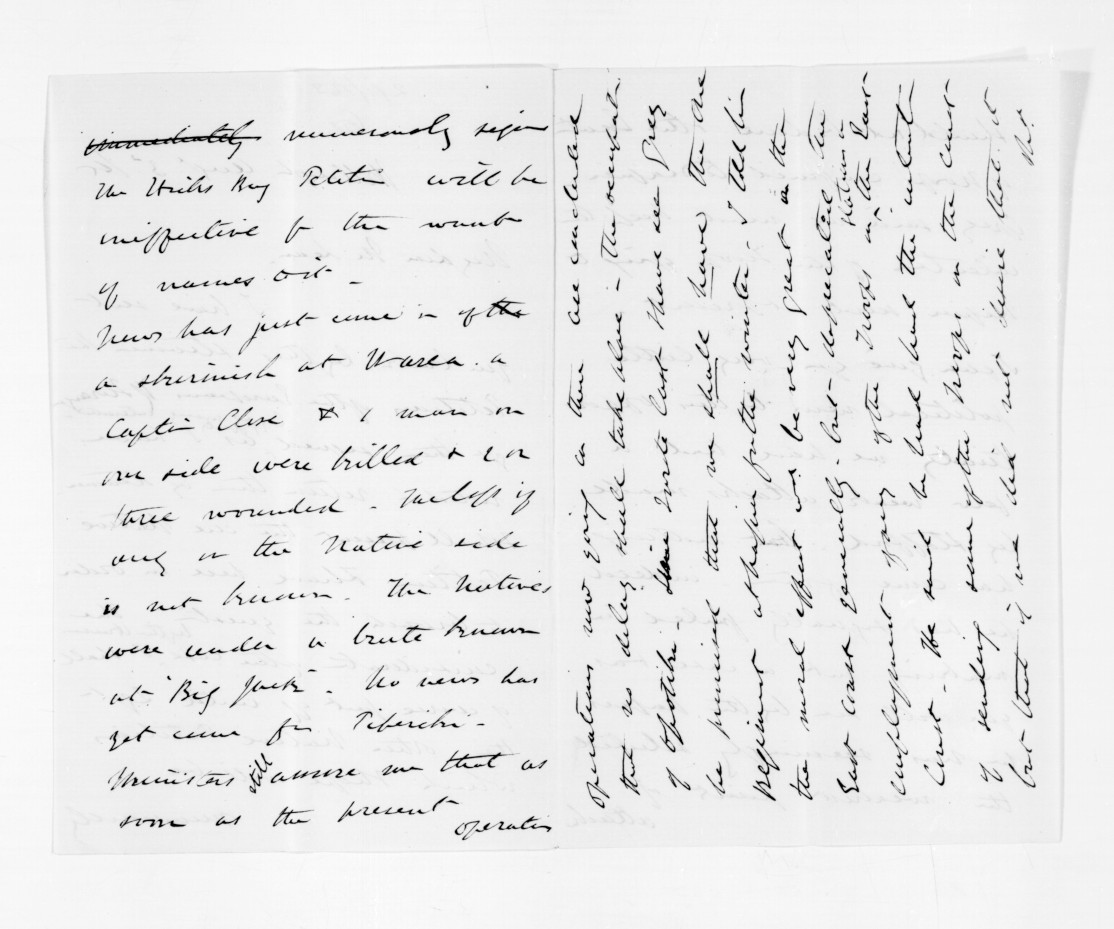 immediately numerously signed
the Hicks Bay Petition will be
ineffective for the want
of names to it -
News has just come in of the
a skirmish at Warea. a
Captn Close & 1 man on
our side were killed & 2 or
three wounded - The loss if
any on the Native side
is not known. The Natives
were under a brute known
as "Big Jack". No news has
yet come from Opotiki -
Ministers still assure me that as
soon as the present
operations
operations now going on there are concluded
that no delay shall take place in the occupation
of Opotiki. Since I wrote last I have seen Grey
he promised that we shall have the one
Regiment at Napier for the winter. I told him
the moral effect wd. be very great on the
East Coast generally. but deprecated the
employment of any of the Troops in the East
Coast. He said he had had the intent
Natives
of sending some of the troops in the Coast
but that if we did not desire that it
Mr.